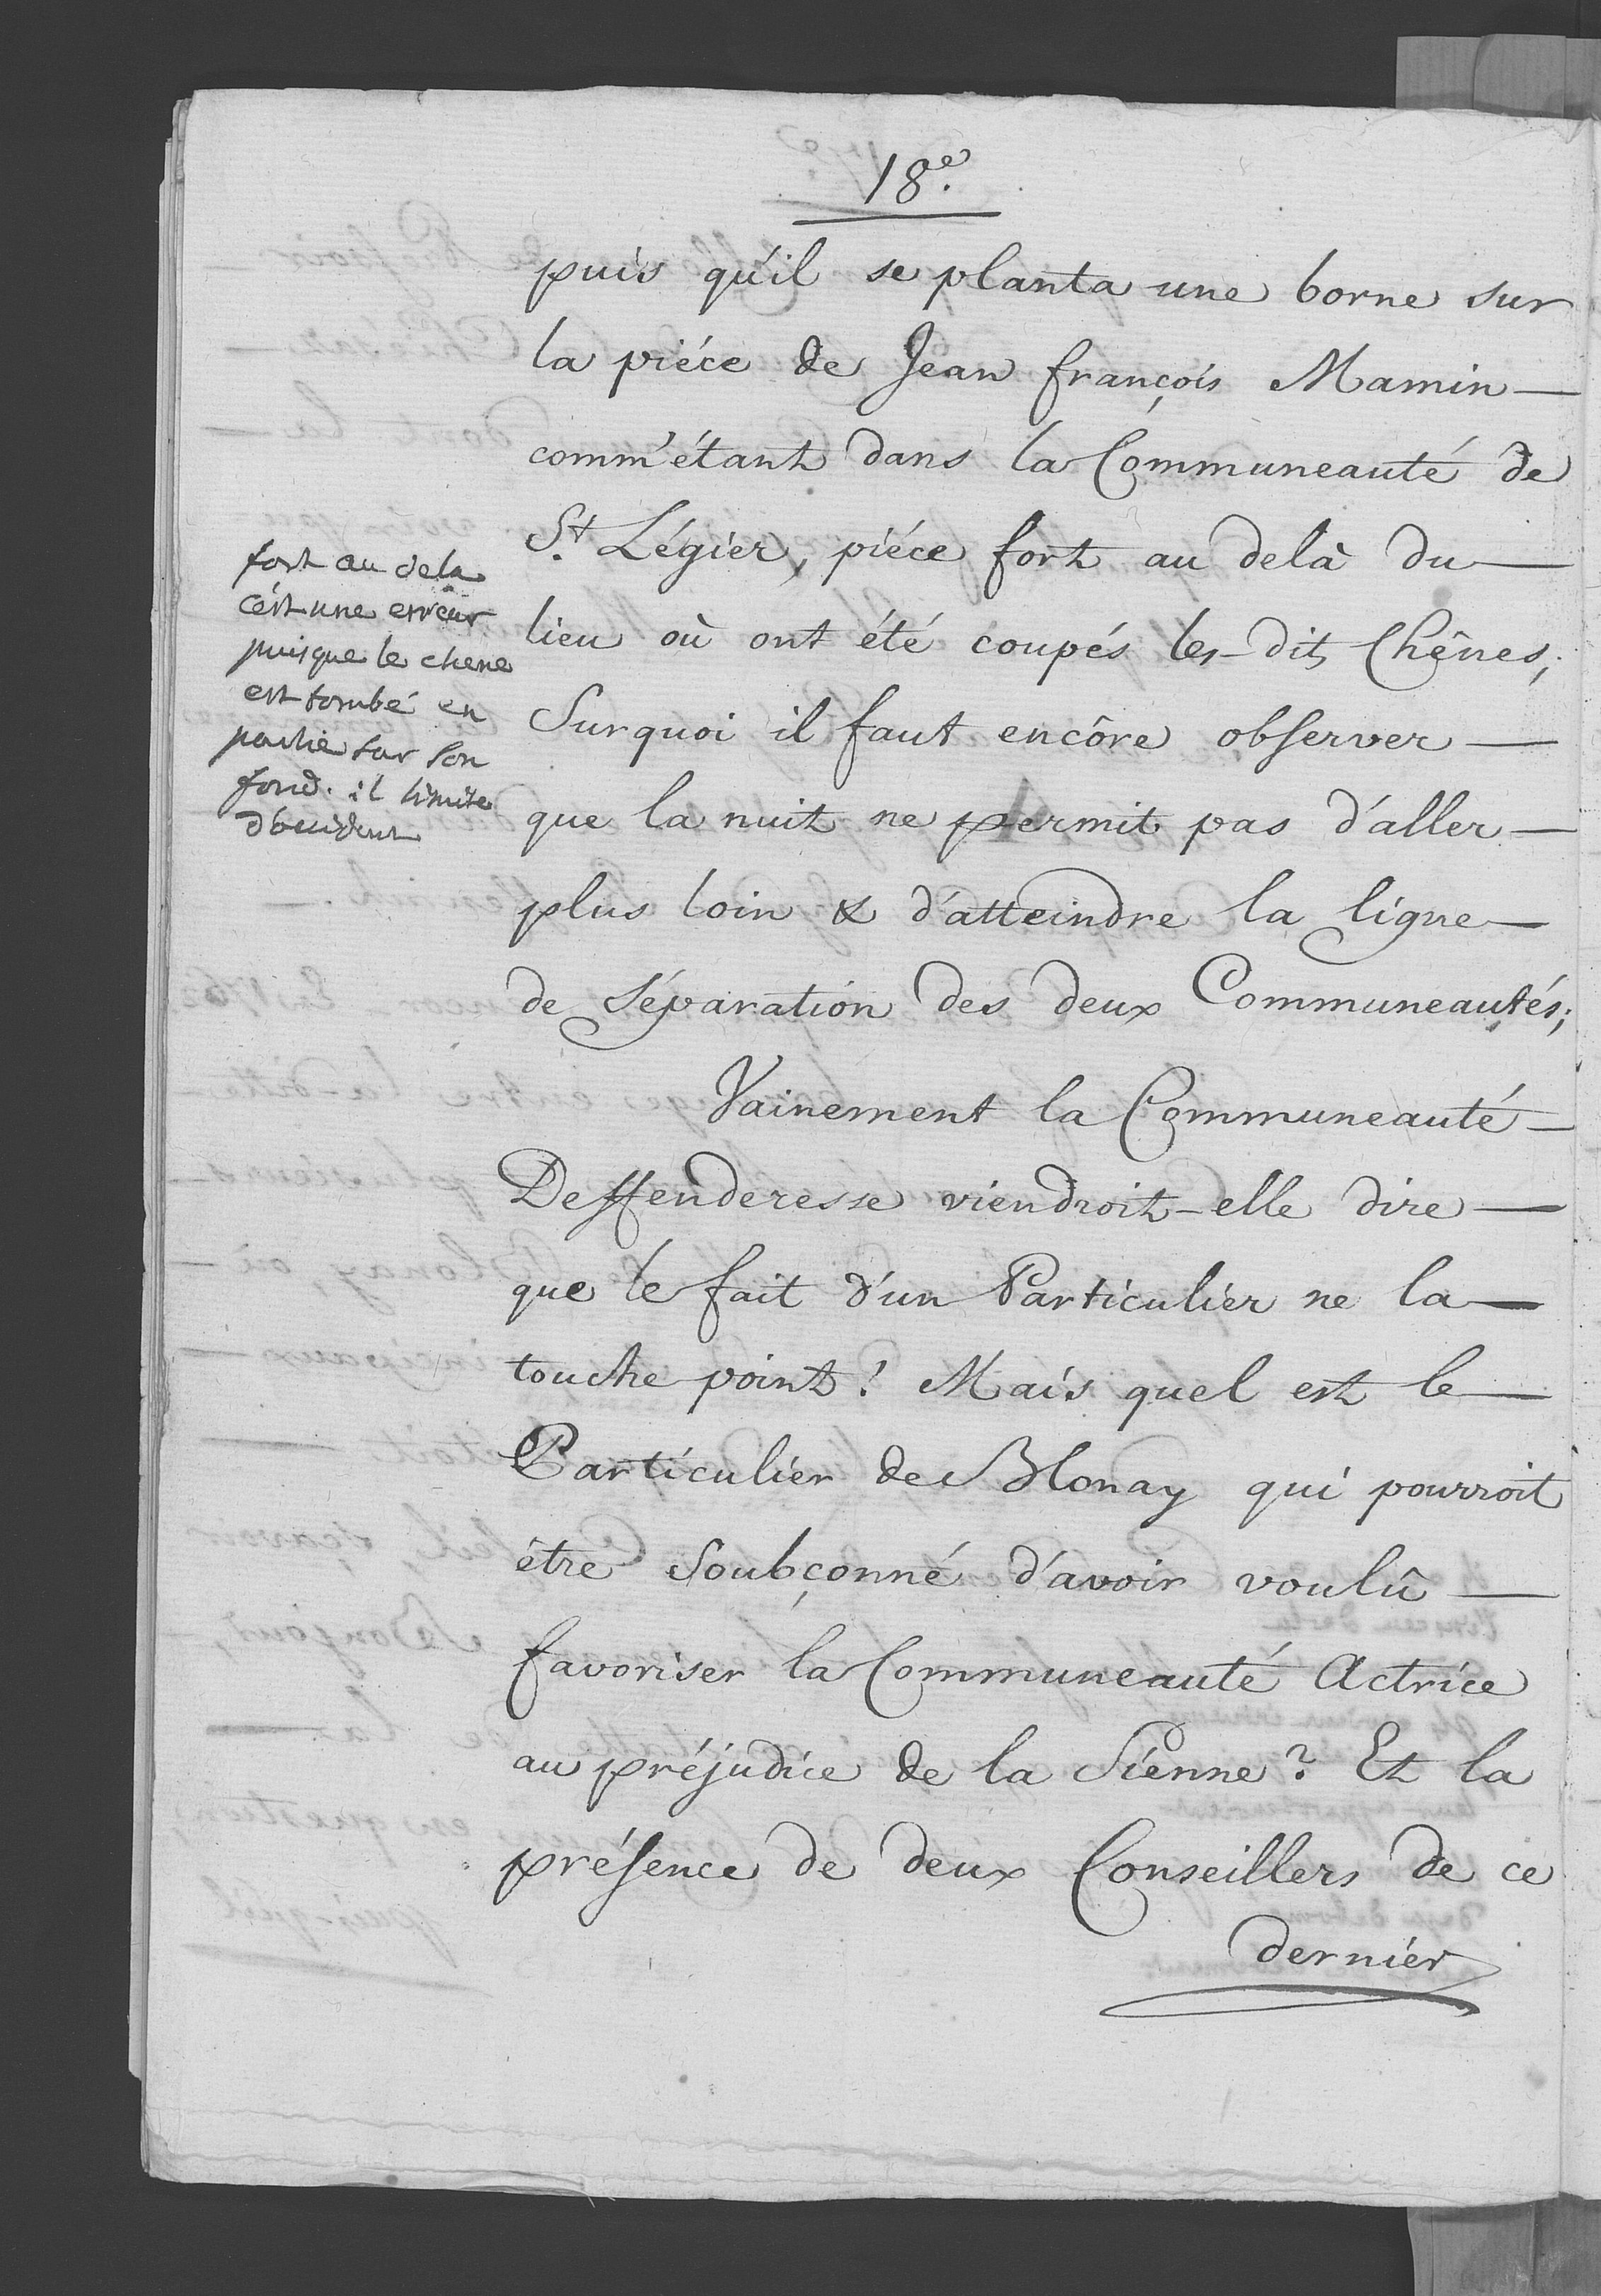 18e.
puis qu'il se planta une borne sur
la piéce de Jean françois Mamin—
comm'étant dans la Communeauté de
St. Légier, piéce fort au delà du—
lieu où ont été coupés les-dits Chênes;
Surquoi il faut encôre observer—
que la nuit ne permit pas d'aller—
plus loin & d'atteindre la ligne—
de Séparation des deux Communeautés;
Vainement la Communeauté—
Deffenderesse viendroit-elle dire—
que le fait d'un Particulier ne la—
touche point! Mais quel est le—
Particulier de Blonay qui pourroit
être Soubçonné d'avoir voulû—
favoriser la Communeauté Actrice
au préjudice de la Siénne? Et la
présence de deux Conseillers de ce
dernier
fort au dela
c'est une erreur
puisque le chene
est tombé en
partie sur son
fond. il limite
d'occident